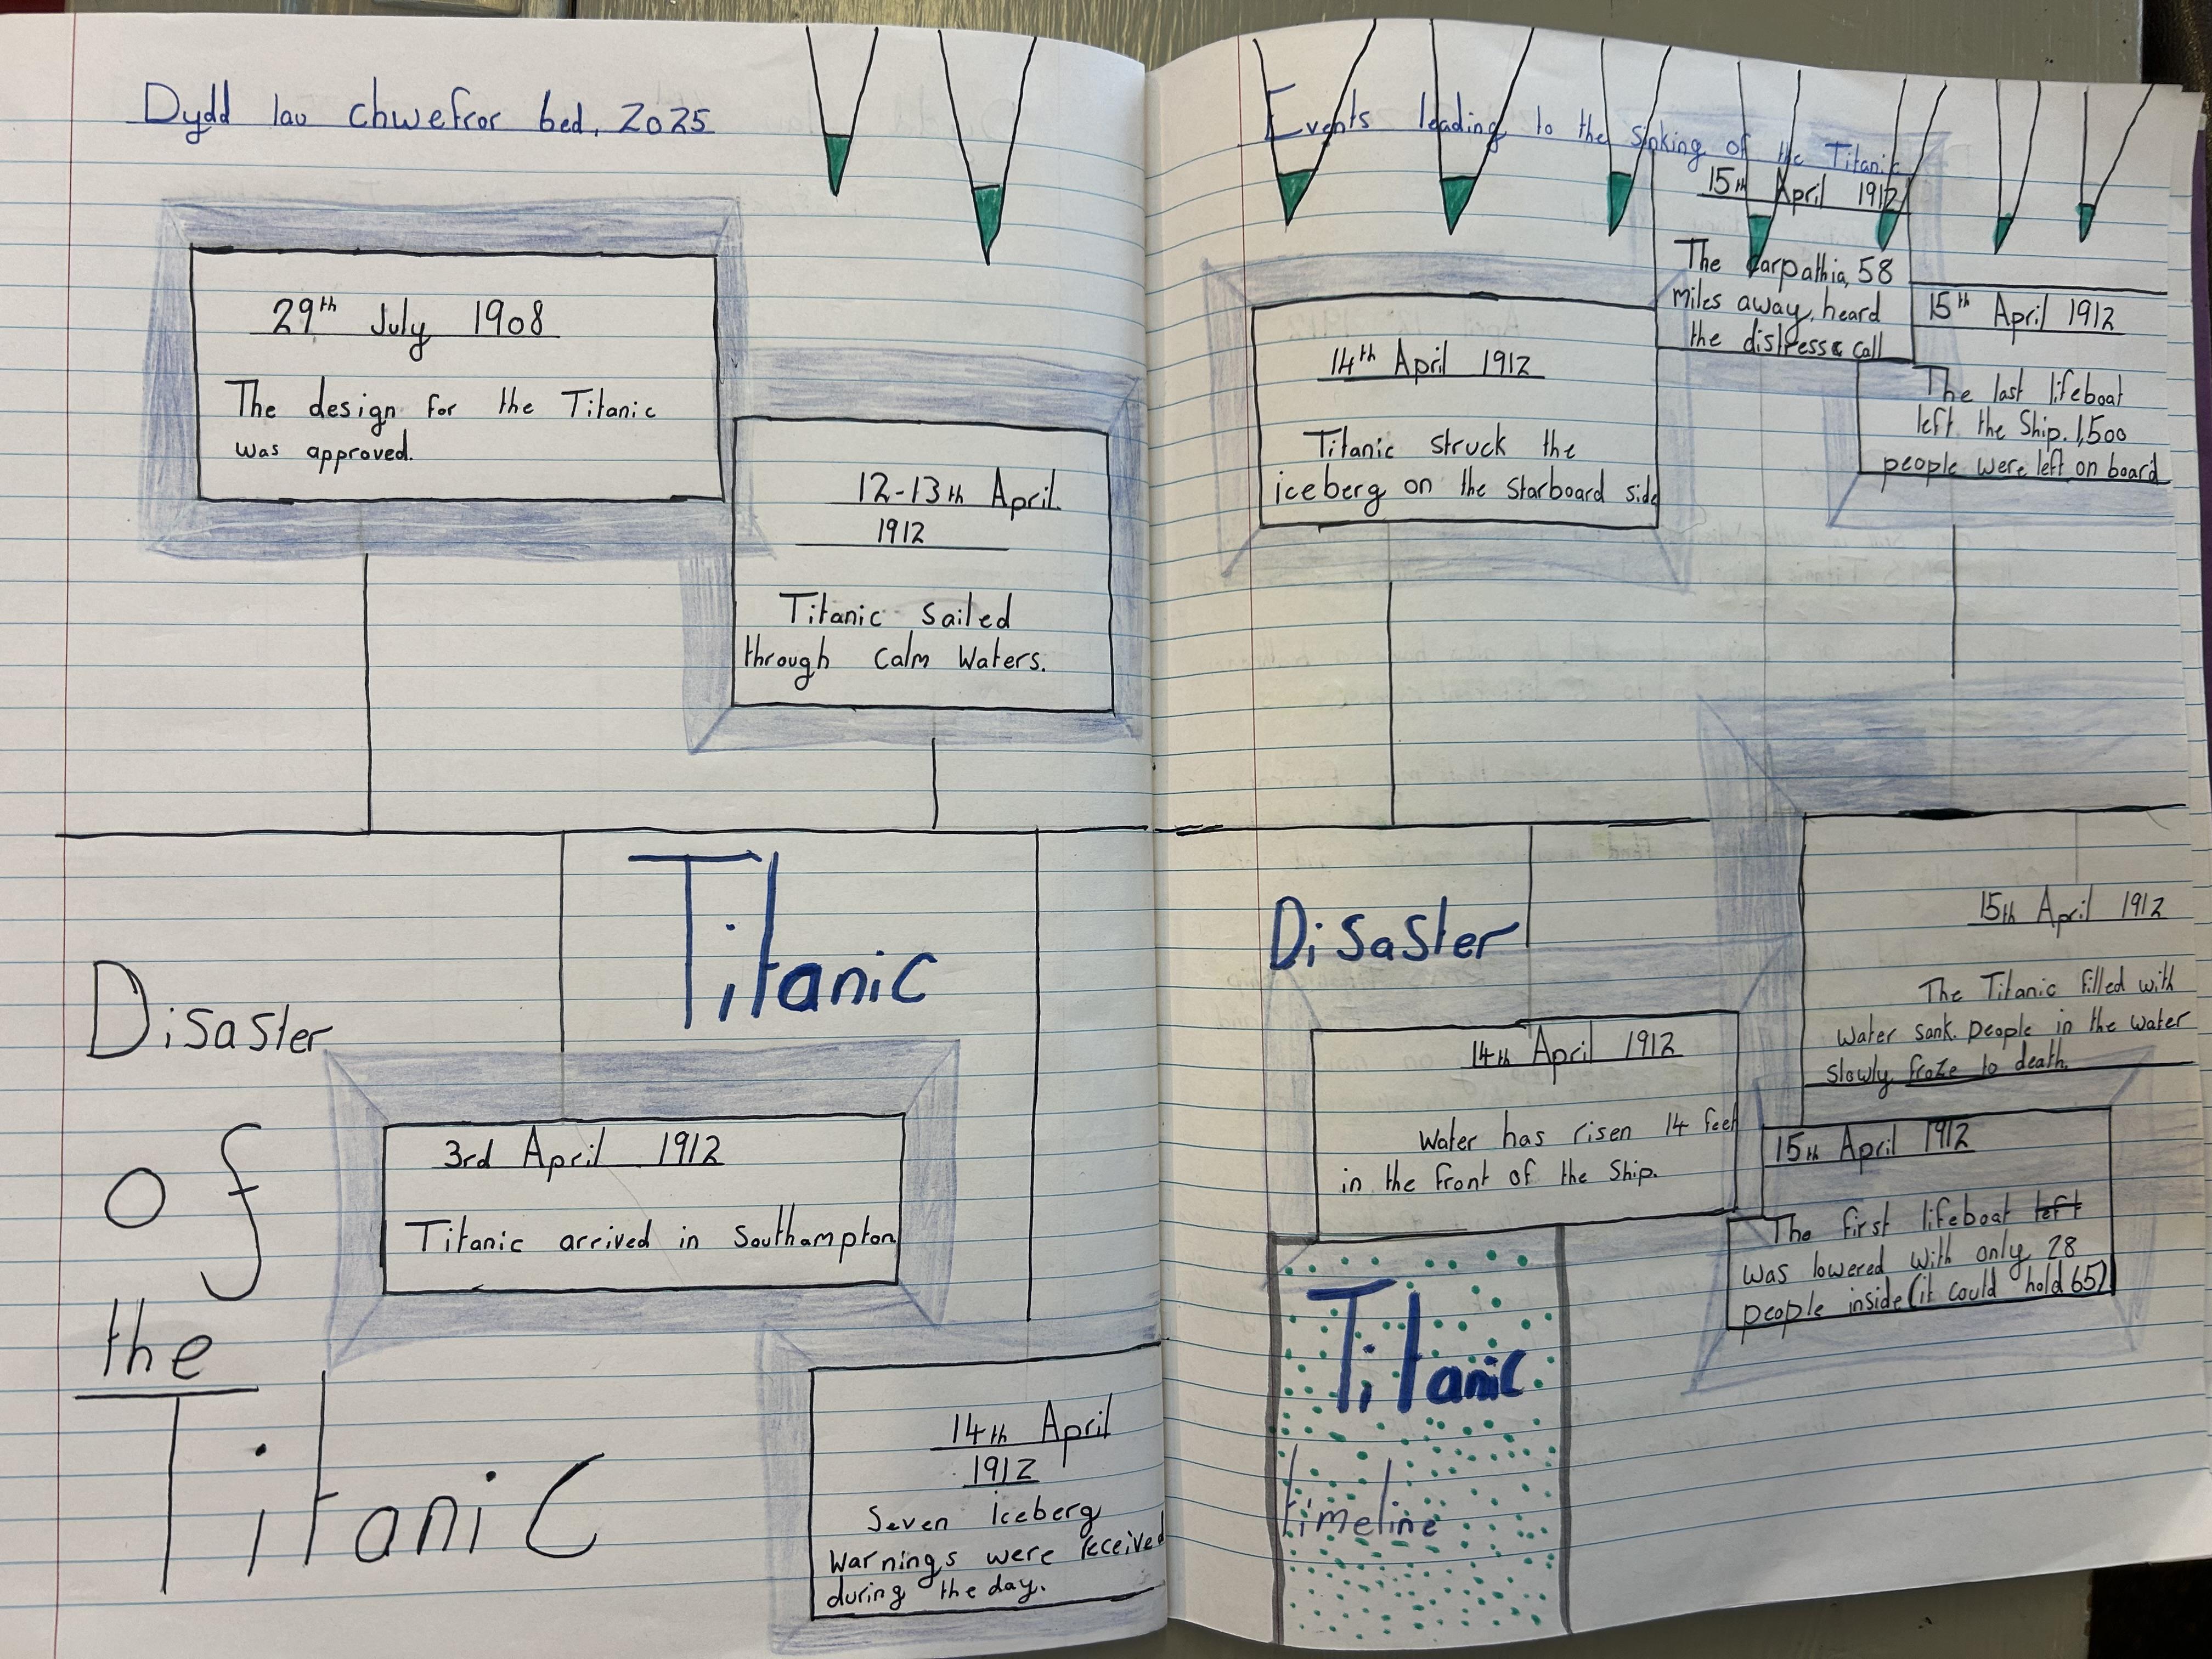 Dydd Iau Chwefror 6ed, 2025
29th July 1908
The design for the Titanic
was approved.
12-13th April
1912
Titanic sailed
through calm waters.
Titanic
Disaster
of
the
Titanic
3rd April 1912
Titanic arrived in Southampton
14th April
1912
Seven Iceberg
Warnings were received
during the day.
Events leading to the sinking of the Titanic
14th April 1912
Titanic struck the
iceberg on the starboard side
15th April 1912
The Carpathia, 58
miles away, heard
the distress call
15th April 1912
The last lifeboat
left the Ship. 1,500
people were left on board
Disaster
14th April 1912
Water has risen 14 feet
in the front of the Ship.
15th April 1912
The Titanic filled with
Water sank. people in the water
slowly froze to death.
15th April 1912
The first lifeboat left
was lowered with only 28
people inside (it could hold 65)
Titanic
timeline